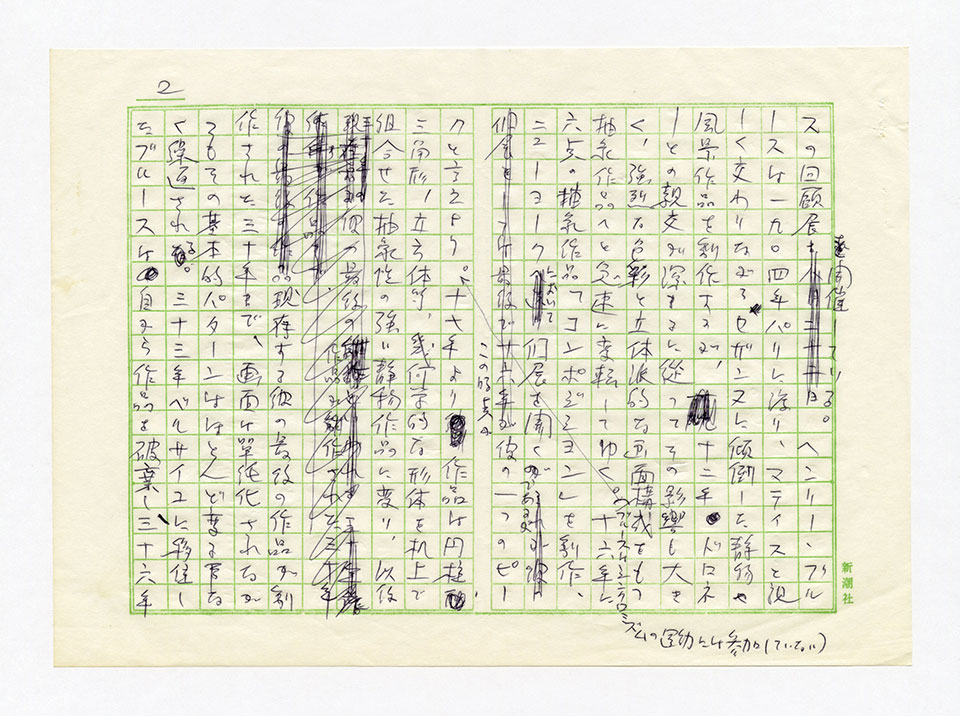 2
スの回顧展を開催している。ヘンリー・ブル
ースは一九〇四年パリに渡り、マティスと親
しく交わりながらセザンヌに傾倒した静物や
風景作品を制作するが、十二年ドロネ
ーとの親交が深まるに従ってその影響も大き
く、強烈な色彩と立体派的な画面構成をもつ
抽象作品へと急速に変転してゆく。十六年に
ズムの運動には参加していない)
六点の抽象作品「コンポジション」を制作、
ニューヨークにおいて個展を開く
個展としては最後で
この時点
彼の一つのピー
クと言えよう。十七年より作品は円柱、
三角形、立方体等、幾何学的な形体を机上で
組合せた抽象性の強い静物作品に変り、以後
現存する彼の最後の作品が制
作された三十年まで、画面は単純化されなが
らもその基本的パターンはほとんど変る事な
く繰返される。三十三年ベルサイユに移住し
たブルースは自から作品を破棄し三十六年
新潮社